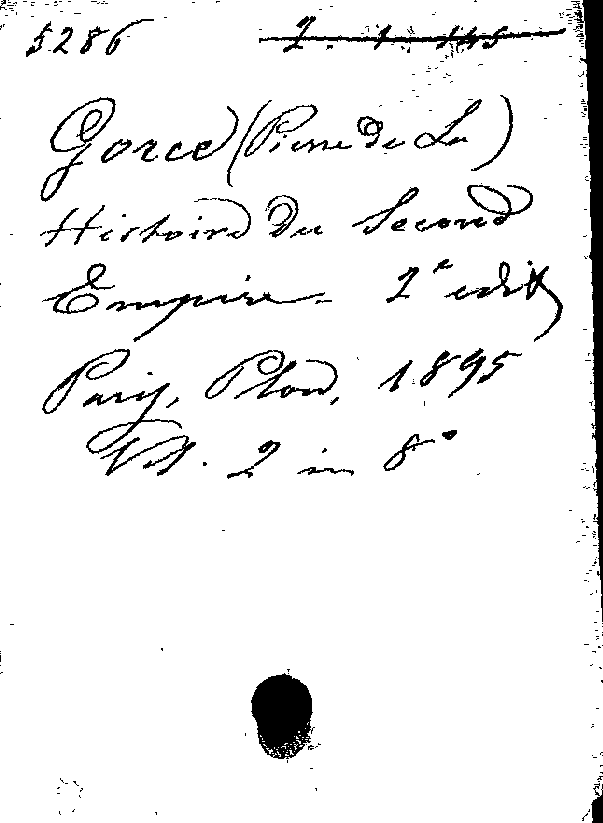 5286 2. 1. 145
Gorce (Pierre de La)
Histoire du Second
Empire - 2e edit
Paris, Plon, 1895
Vol. 2 in 8°